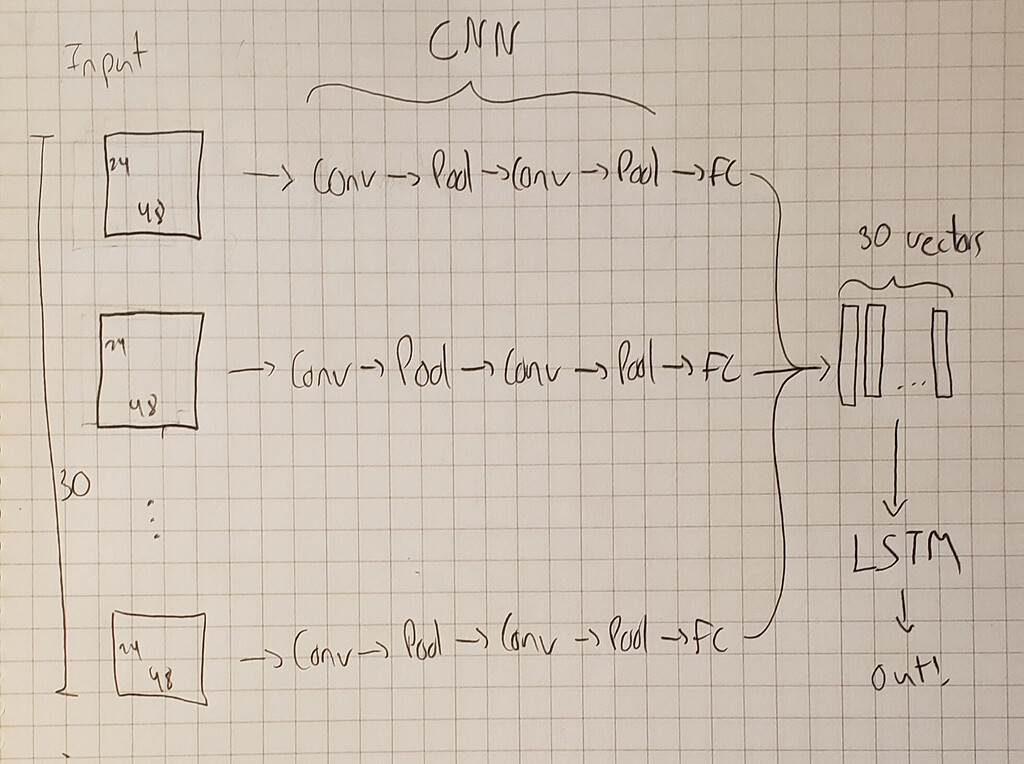 Input
CNN
24
48
→ Conv → Pool → Conv → Pool → FC
30 vectors
24
48
→ Conv → Pool → Conv → Pool → FC →
...
30
⋮
LSTM
24
48
→ Conv → Pool → Conv → Pool → FC
out!